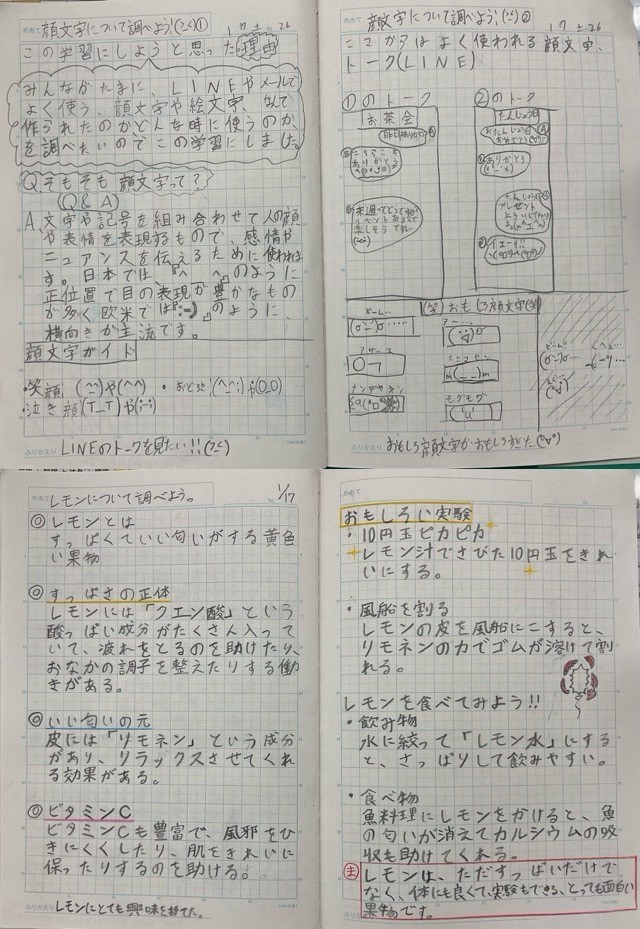 めあて 顔文字について調べよう!(ﾆﾆ)①
1月土 26
この学習にしようと思った理由
みんながたまに、LINEやメールで
よく使う、顔文字や絵文字、なんで
作られたのかどんな時に使うのか
を調べたいのでこの学習にしました。
Q.そもそも顔文字って?
(Q&A)
A.文字や記号を組み合わせて人の顔
や表情を表現するもので、感情や
ニュアンスを伝えるために使われま
す。日本では「^ ^」のように
正位置で目の表現が豊かなもの
が多く欧米では「:-)」のように、
横向きが主流です。
顔文字ガイド
・笑顔 (^_^)や(^^) ・おどろき(^_^;)や(O_O)
・泣き顔(T_T)や(;_;)
ふりかえり LINEのトークを見たい!!
めあて 顔文字について調べよう!②
1 7 土 26
ここからはよく使われる顔文字、
トーク(LINE)
①のトーク
お茶会
昨日はありがとう
こちらこそ
ありがとう
来週ってどう?
イベントあるって
楽しそうですね
②のトーク
たんじょう日
おたんじょう日
おめでとう
ありがとう
たんじょう日
プレゼント
イエーイ!!
(笑)おもしろ顔文字(笑)
ビーム…
アザース
ナンデヤネン
モグモグ
m(_ _)m
ふりかえり おもしろ顔文字がおもしろすぎた(°∀°)
めあて レモンについて調べよう。
1/17
◎レモンとは
すっぱくていい匂いがする黄色
い果物
◎すっぱさの正体
レモンには「クエン酸」という
酸っぱい成分がたくさん入って
いて、疲れをとるのを助けたり、
おなかの調子を整えたりする働
きがある。
◎いい匂いの元
皮には「リモネン」という成分
があり、リラックスさせてくれ
る効果がある。
◎ビタミンC
ビタミンCも豊富で、風邪をひ
きにくくしたり、肌をきれいに
保ったりするのを助ける。
ふりかえり レモンにとても興味を持てた。
めあて
おもしろい実験
・10円玉ピカピカ
レモン汁でさびた10円玉をきれ
いにする。
・風船を割る
レモンの皮を風船にこすると、
リモネンの力でゴムが溶けて割
れる。
レモンを食べてみよう!!
・飲み物
水に絞って「レモン水」にする
と、さっぱりして飲みやすい。
・食べ物
魚料理にレモンをかけると、魚
の匂いが消えてカルシウムの吸
収も助けてくれる。
ま レモンは、ただすっぱいだけで
なく、体にも良くて、実験もできる、とっても面白い
果物です。
ふり